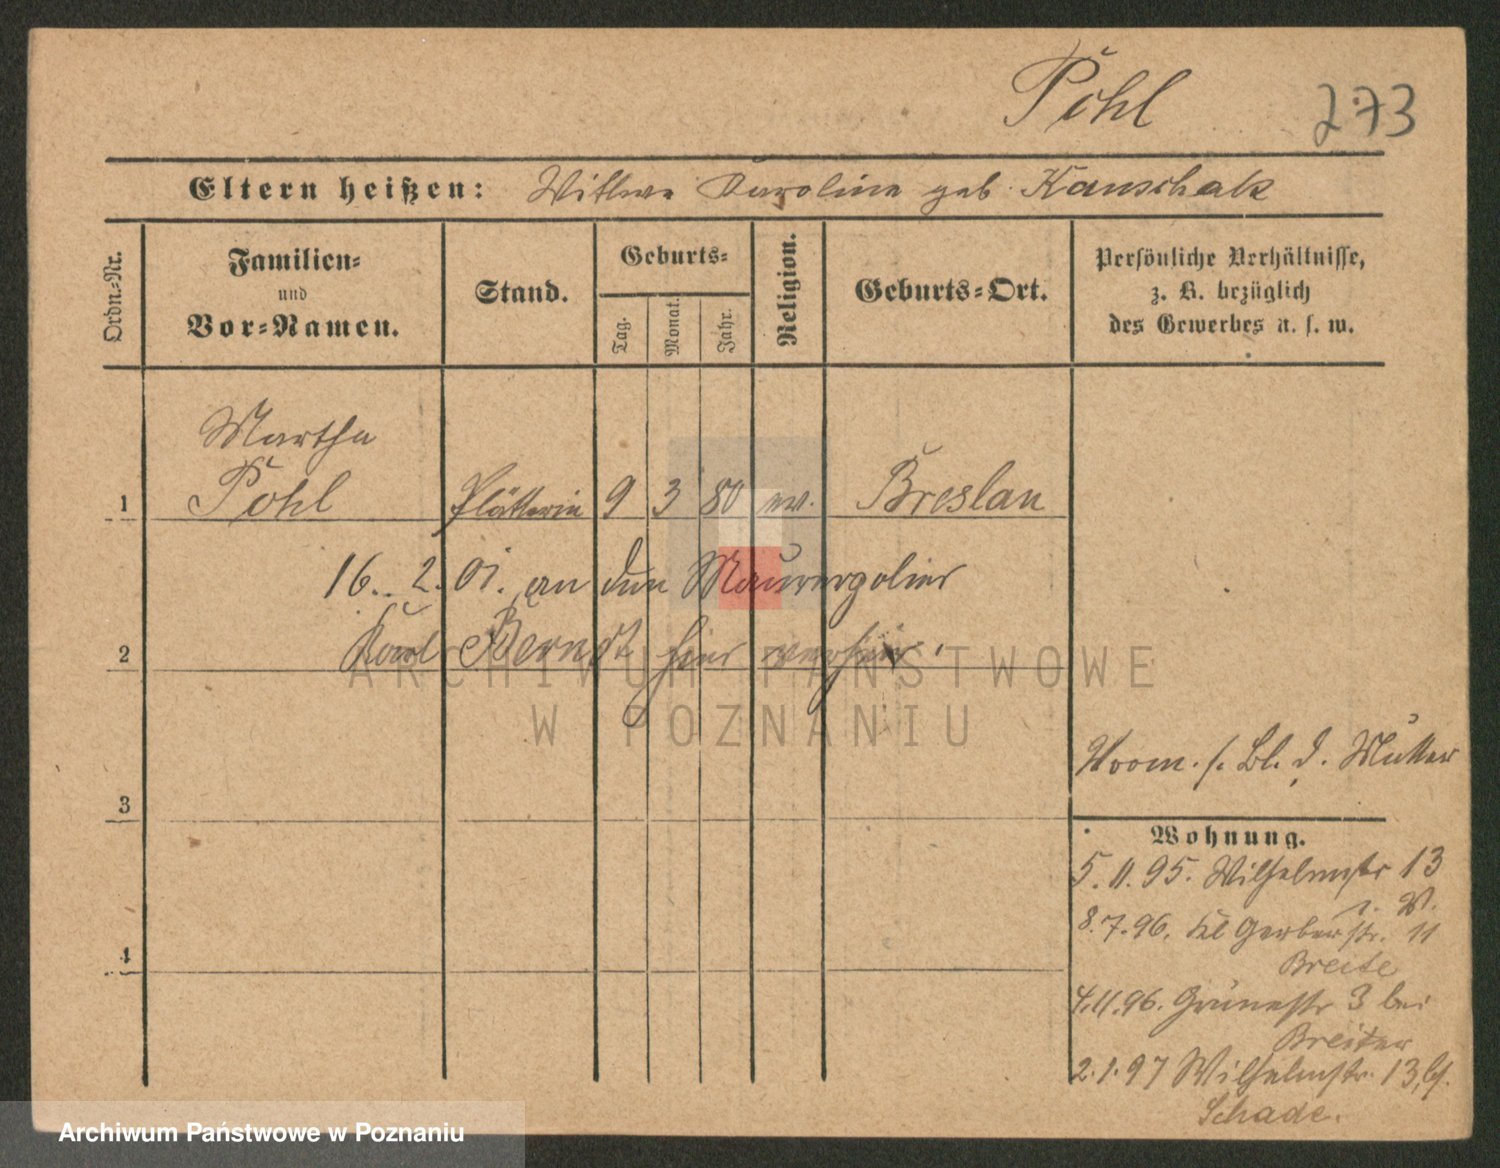 Pohl 273
Eltern heißen: Wittwe Karoline geb. Kauschak
Ordn.-Nr.
Familien-
und
Vor-Namen.
Stand.
Geburts-
Tag.
Monat.
Jahr.
Religion.
Geburts-Ort.
Persönliche Verhältnisse,
z. B. bezüglich
des Gewerbes u. s. w.
Martha
1 Pohl Plätterin 9 3 80 ev. Breslau
16. 2. 01. an den Maurerpolier
2 Karl Berndt hier verheir.
ARCHIWUM PAŃSTWOWE
W POZNANIU
s. Bl. d. Mutter
3
Wohnung.
5. 11. 95. Wilhelmstr 13
8. 7. 96. Kl Gerberstr. 11
Breite
4
4. 11. 96. Grünestr 3 bei
Breiter
2. 1. 97 Wilhelmstr. 13, b.
Schade.
Archiwum Państwowe w Poznaniu